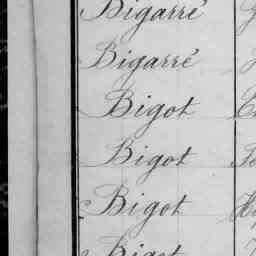 Bigarré
Bigarré
Bigot
Bigot
Bigot
Bigot